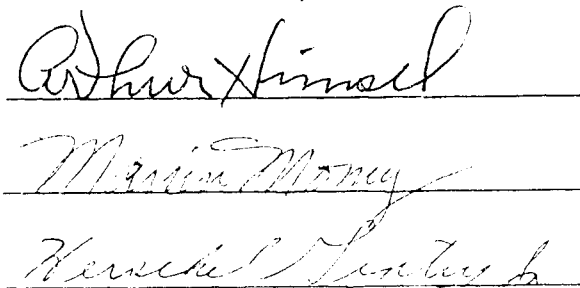 Arthur Himsel
Marvin Money
Herschel Gentry Jr